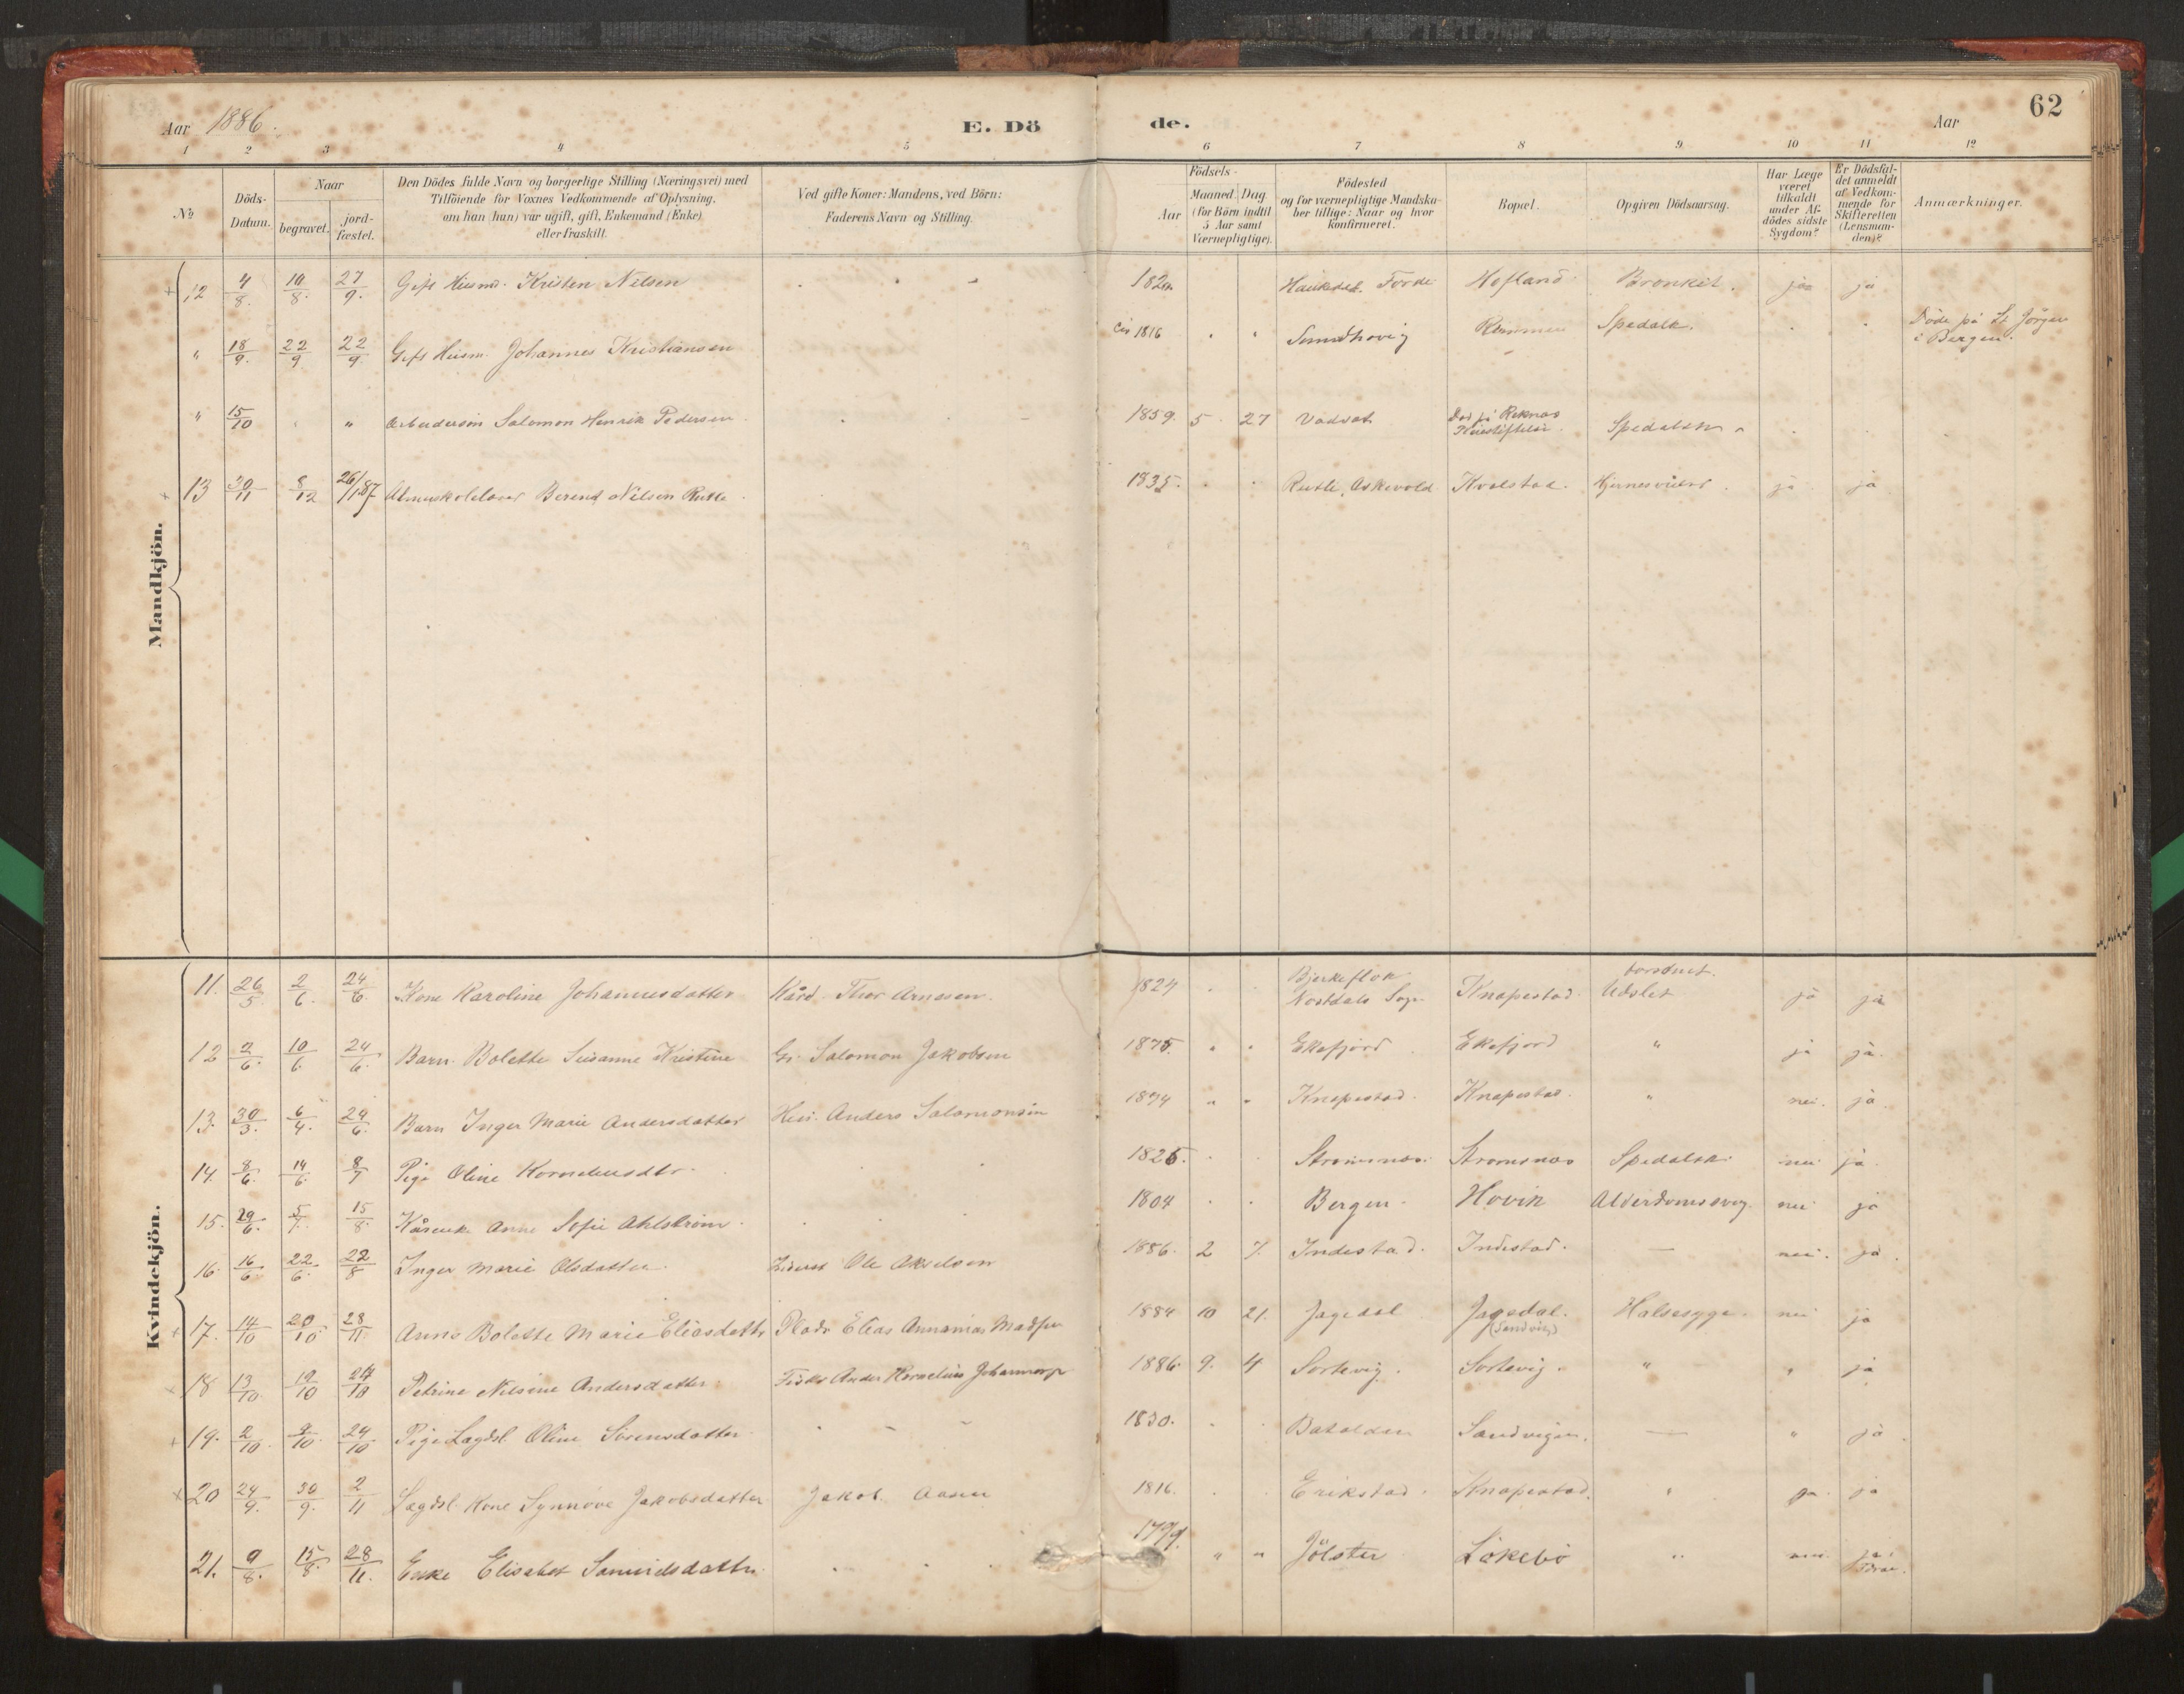 Aar 1886. E. Dö de. Aar 62
1 2 3 4 5 6 7 8 9 10 11 12
No
Döds-Datum.
Naar
begravet.
jord-fæstet.
Den Dödes fulde Navn og borgerlige Stilling (Næringsvei) med
Tilföiende for Voxnes Vedkommende af Oplysning,
om han (hun) var ugift, gift, Enkemand (Enke)
eller fraskilt.
Ved gifte Koner: Mandens, ved Börn:
Faderens Navn og Stilling.
Födsels-
Aar
Maaned. Dag
(for Börn indtil
5 Aar samt
Værnepligtige).
Födested
og for værnepligtige Mandska-
ber tillige: Naar og hvor
konfirmeret.
Bopæl.
Opgiven Dödsaarsag.
Har Læge
været
tilkaldt
under Af-
dödes sidste
Sygdom?
Er Dödsfal-
det anmeldt
af Vedkom-
mende for
Skifteretten
(Lensman-
den)?
Anmærkninger.
Mandkjön.
12 4/8. 10/8. 27/9. Gift Husmd. Kristen Nilsen Haukdal. Förde Hofland Bronkit. ja ja
" 18/9. 22/9 22/9 Gift Husm. Johannes Kristiansen 1816 Sundhovig Spedalk. Döde på St Jörgen
i Bergen.
" 15/10 " Salomon Henrik Pedersen 1859. 5. 27 Vadset Död på Reknæs Spedalsk
13 30/11 8/12 26/1 87 Almueskolelærer Berend Nilsen Rutle 1835. Rutle, Askevold Kvalstad. ja ja
Kvindekjön.
11. 26/5. 2/6. 24/6. Kone Karoline Johannesdatter Kård. Thor Arnesen. 1824 Knapestad. Udslet ja ja
12 2/6. 10/6. 24/6. Barn. Bolette Susanne Kristine Gr. Salomon Jakobsen 1875. Ekefjord Ekefjord " ja ja.
13. 30/3. 6/4. 24/6. Barn Inger Marie Andersdatter Hus. Anders Salomonsen 1874 " " Knapestad. Knapestad. " nei. ja.
14. 8/6. 14/6. 8/7 Pige Oline Korneliusdtr. 1825. Strömsnæs Strömsnæs Spedalsk. nei ja.
15. 29/6. 5/7. 15/8. Kårenk. Anne Sofie Ahlström. 1804 Bergen. Hovik Alderdomssvag. nei ja
16. 16/6 22/6. 22/8 Inger Marie Olsdatter. Ole Akselsen 1886. 2 7. Indestad. Indestad. — nei. ja.
17. 14/10 20/10 28/11 Anne Bolette Marie Eliasdatter Pladsr Elias Annanias Madsen 1884 10 21. Jagedal Jagedal. (Sandvig) Halssyge. nei ja
18 13/10. 19/10 24/10 Petrine Nilsine Andersdatter. Fisker Anders Kornelius 1886. 9. 4 Sortevig. Sortevig. " " ja
19. 2/10. 9/10. 24/10 Pige Lægdsl. Oline Sörensdatter 1830. Batalden Sandvigen. — " ja.
20 24/9. 30/9. 2/11 Lægdsl. Kone Synnöve Jakobsdatter Jakob Aasen 1816. Erikstad. Knapestad. " ja. ja
21. 9/8. 15/8. 28/11. Enke Elisabet Samuelsdatter. 1799. " " Jölster Lökebö " nei ja i
Förde.